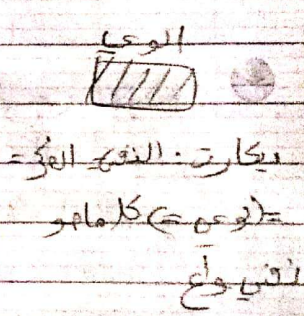 الوعي
ديكارت: النفس = الفكر =
= (الوعي =) كل ما هو
نفسي واع